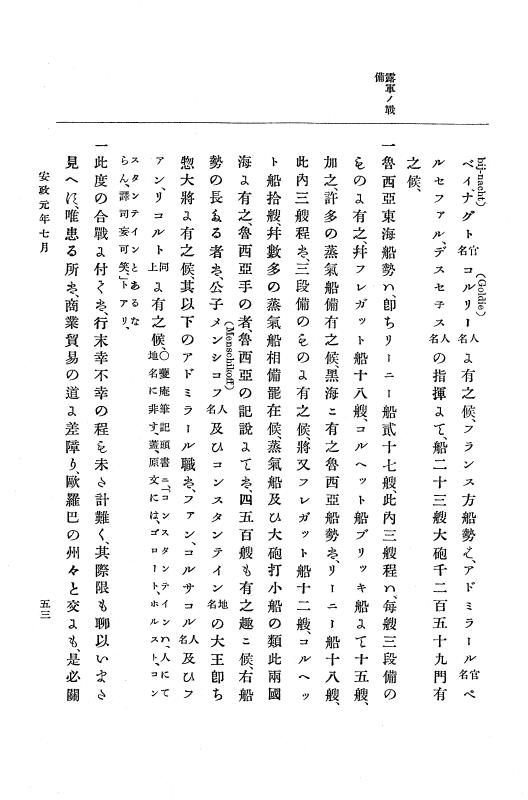 露軍ノ戰
備
bij-nacht)　　(Goldie)
ベイ、ナグト官名コルリー人名ゟ有之候、フランス方船勢ハ、アドミラール官名ペ
ルセフアル、デスセチス人名の指揮ゟて、船二十三艘大砲千二百五十九門有
之候、
一魯西亞東海船勢ハ、卽ちリーニー船貳十七艘、此内三艘程ハ、每艘三段備の
ものゟ有之、幷フレガット船十八艘、コルヘット船ブリッキ船ゟて十五艘、
加之、許多の蒸氣船備有之候、黑海ニ有之魯西亞船勢ハ、リーニー船十八艘、
此内三艘程ハ、三段備のものゟ有之候、將又フレガット船十二艘、コルヘッ
ト船拾艘、幷數多の蒸氣船相備罷在候、蒸氣船及ひ大砲打小船の類此兩國
海ゟ有之、魯西亞手の者、魯西亞の記説ゟてハ、四五百艘も有之趣ニ候、右船
(Menschikoff)
勢の長たる者ハ、公子メンシコフ人名及ひコンスタンテイン地名の大王卽ち
惣大將ゟ有之候、其以下のアドミラール職ハ、フアン、コルサコル人名及ひフ
アン、リコルト同上ゟ有之候、○甕庵筆記頭書ニ、「コンスタンテインハ、人にて
地名に非す、蓋、原文には、ゴロート、ホルスト、コン
スタンテインとあるな
らん、譯司妄可笑、」トアリ、
一此度の合戰ゟ付てハ、行末幸不幸の程ハ未た計難く、其際限も聊以いまた
見へす、唯患る所ハ、商業貿易の道ゟ差障り、歐羅巴の州々と交るも、是必關
安政元年七月
五三